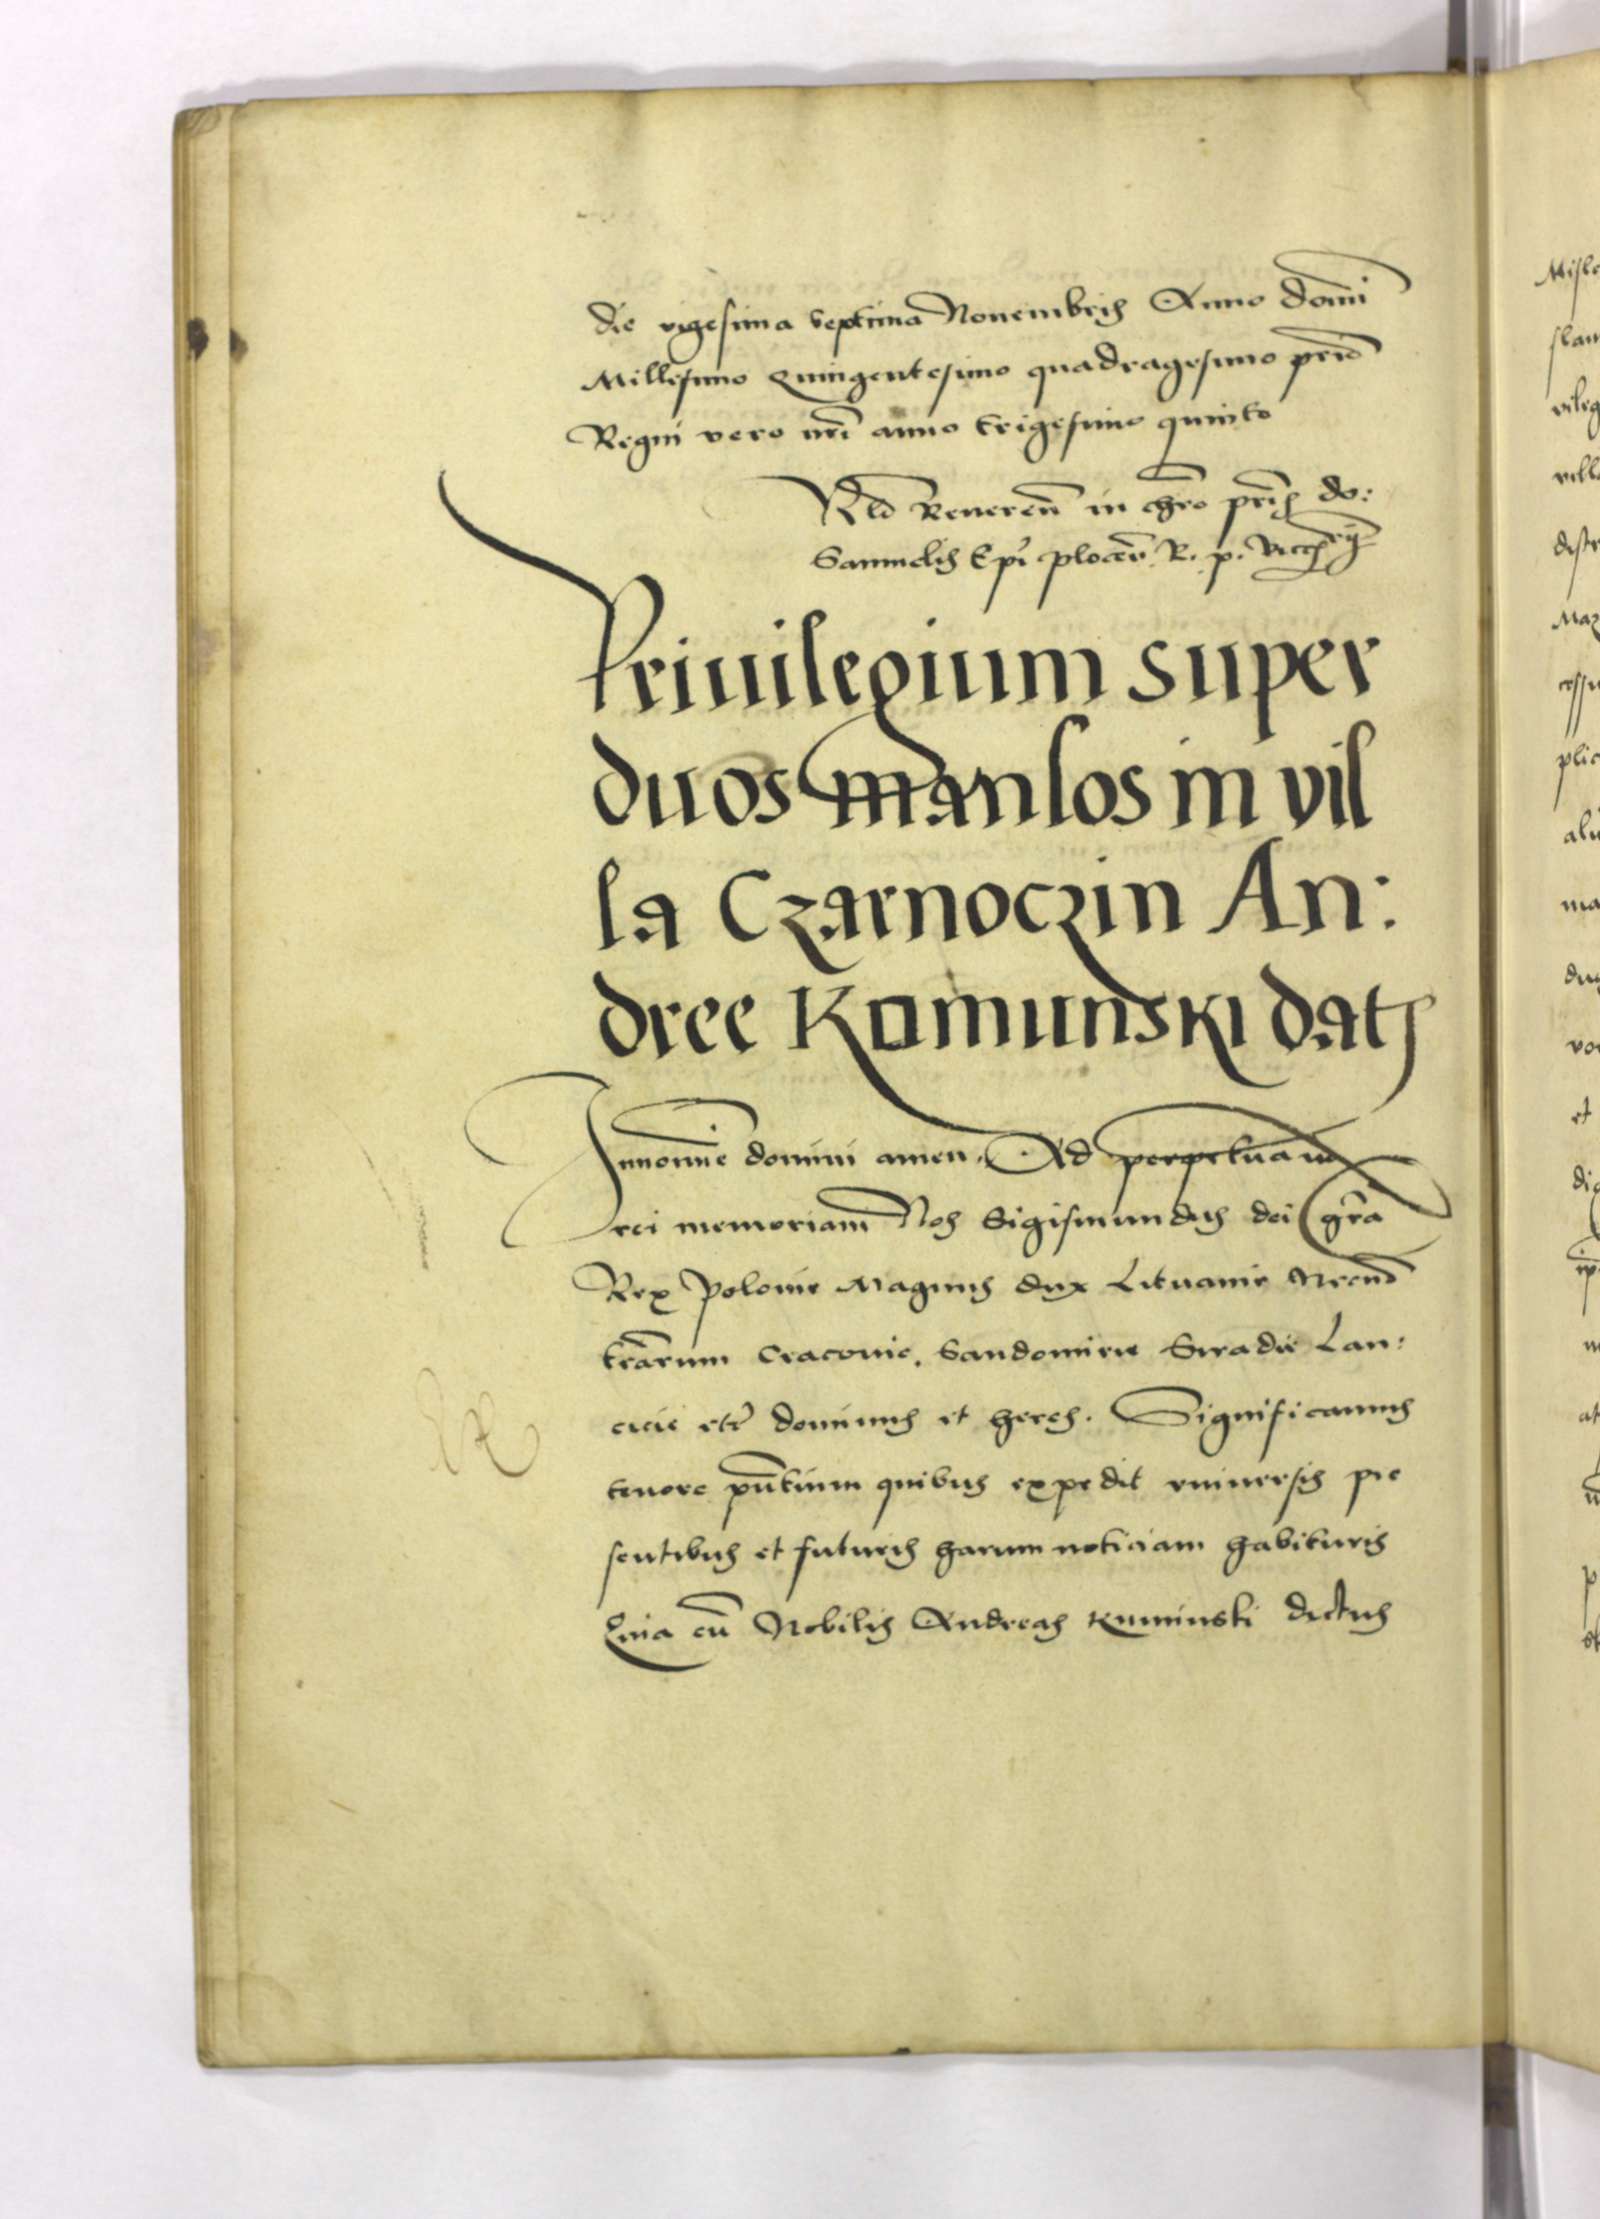 die vigesima septima Nouembris Anno domī
Millesimo Quingentesimo quadragesimo prīo
Regni vero nr̄i anno trigesimo quinto
Rlō Reuereñ in chr̄o pr̄is do:
Samuelis Ep̄i ploceñ R. p. Viccꝭrij
Priuilegium super
duos manlos in vil
la Czarnoczin An:
dree Komunski datꝭ
Innomīe domini amen. Ad perpetuam
rei memoriam Nos Sigismundus dei gr̄a
Rex Polonie Magnus dux Lituanie Necnō
tr̄arum Cracouie, Sandomirie Siradie Lan:
cicie etc̄ dominus et heres. Significamus
tenore pn̄tium quibus expedit vniuersis pre
sentibus et futuris harum noticiam habituris
Quia cū Nobilis Andreas Kuminski dictus